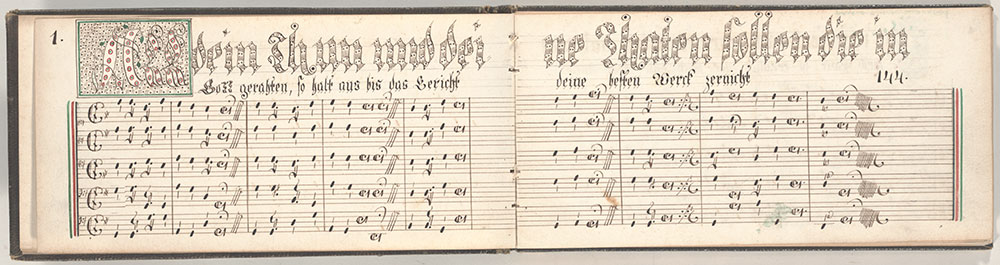 1. All dein Thun und dei ne Thaten sollen dir in
Gott gerahten, so halt aus bis das Gericht deine besten Werck zernicht